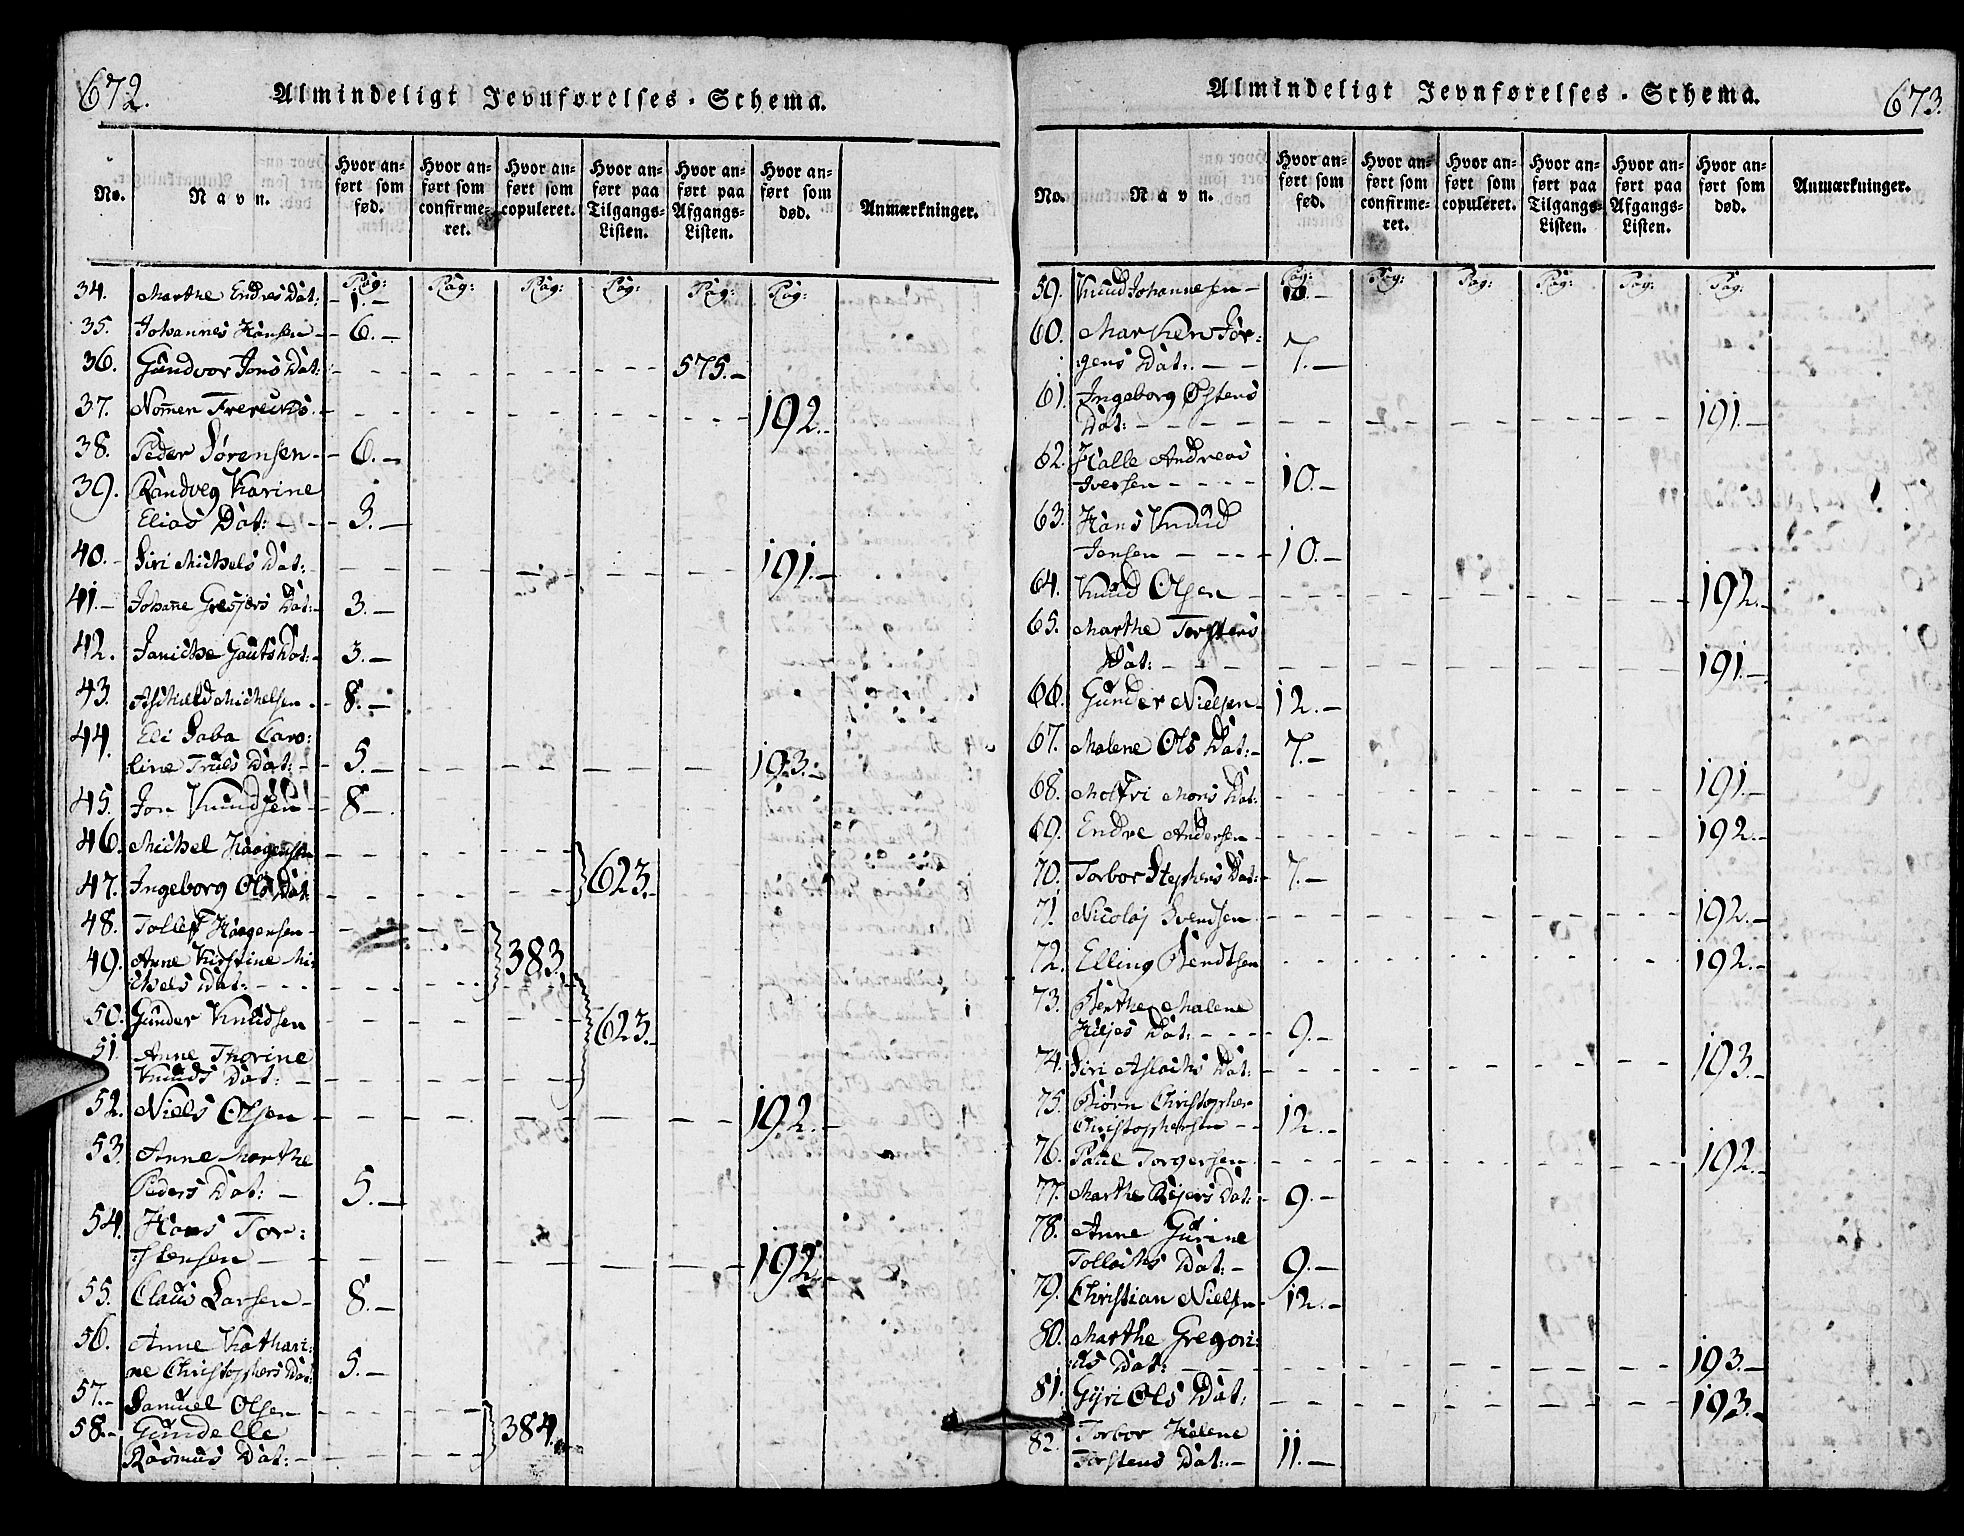 672.
Almindeligt Jevnførelses-Schema.
No.
Navn.
Hvor anført som fød.
Hvor anført som confirmeret.
Hvor anført som copuleret.
Hvor anført paa Tilgangs-Listen.
Hvor anført paa Afgangs-Listen.
Hvor anført som død.
Anmærkninger.
Pag: Pag: Pag: Pag: Pag: Pag:
34. Marthe Endres Dat: 1.-
35. Johannes Hansen - 6.-
36. Gundvor Jons Dat: 575.-
37. 192.-
38. Peder Sørensen - 6.-
39. Randveg Karine
Elias Dat: - 3.-
40. Siri Michels Dat: 191.-
41.- Johanne Dat: 3.-
42. Janiche Gauts Dat: 3.-
43. Michelsen - 8.-
44. Eli Saba Caro:
line Truls Dat: - 5.- 193.-
45. Jon Knudsen - 8-.
46. Michel Haagensen
47. Ingeborg Ols Dat: 623.-
48. Tollef Haagensen -
49. Anne Kirstine Mi:
chels Dat: - 383.
50. Gunder Knudsen 623.-
51. Anne Thorine
Knuds Dat: -
52. Niels Olsen - 192.-
53. Anne Marthe
Peders Dat: - 5.-
54. Hans Tor:
stensen - 192.-
55. Claus Larsen - 8.-
56. Anne Kathari:
ne Christophers Dat: 5.-
57.- Samuel Olsen
58.- Gundelle
Rasmus Dat: - 384.-
Almindeligt Jevnførelses-Schema.
673.
No.
Navn.
Hvor anført som fød.
Hvor anført som confirmeret.
Hvor anført som copuleret.
Hvor anført paa Tilgangs-Listen.
Hvor anført paa Afgangs-Listen.
Hvor anført som død.
Anmærkninger.
Pag: Pag: Pag: Pag: Pag: Pag:
59. Knud Johannesen - 10.-
60. Marken Jør:
gens Dat: - 7.-
61. Ingeborg Østens
Dat: - 191.-
62. Halle Andreas
Iversen - 10.-
63. Hans Knud
Jensen - 10.-
64. Knud Olsen - 192.-
65. Marthe Torstens
Dat: - 191.-
66. Gunder Nielsen - 12.-
67. Malene Ols Dat: - 7.-
68. Mons Dat: 191.-
69. Endre Andersen - 192.-
70. Torbor Stephens Dat: 7.-
71. Nicolaj Svendsen 192.-
72. Elling Bendtsen 192.-
73. Berthe Malene
Dat: - 9.-
74. Siri Aslachs Dat: 193.-
75. Biørn Christopher
Christophersen - 12.-
76. Paul Torgersen 192.-
77. Marthe Dat: 9.-
78. Anne Gurine
Tollachs Dat: - 9.-
79. Christian Nielsen - 12.-
80. Marthe Gregori:
us Dat: 193.-
81. Gyri Ols Dat: 193.-
82. Torbor Helene
Torstens Dat: - 11.-